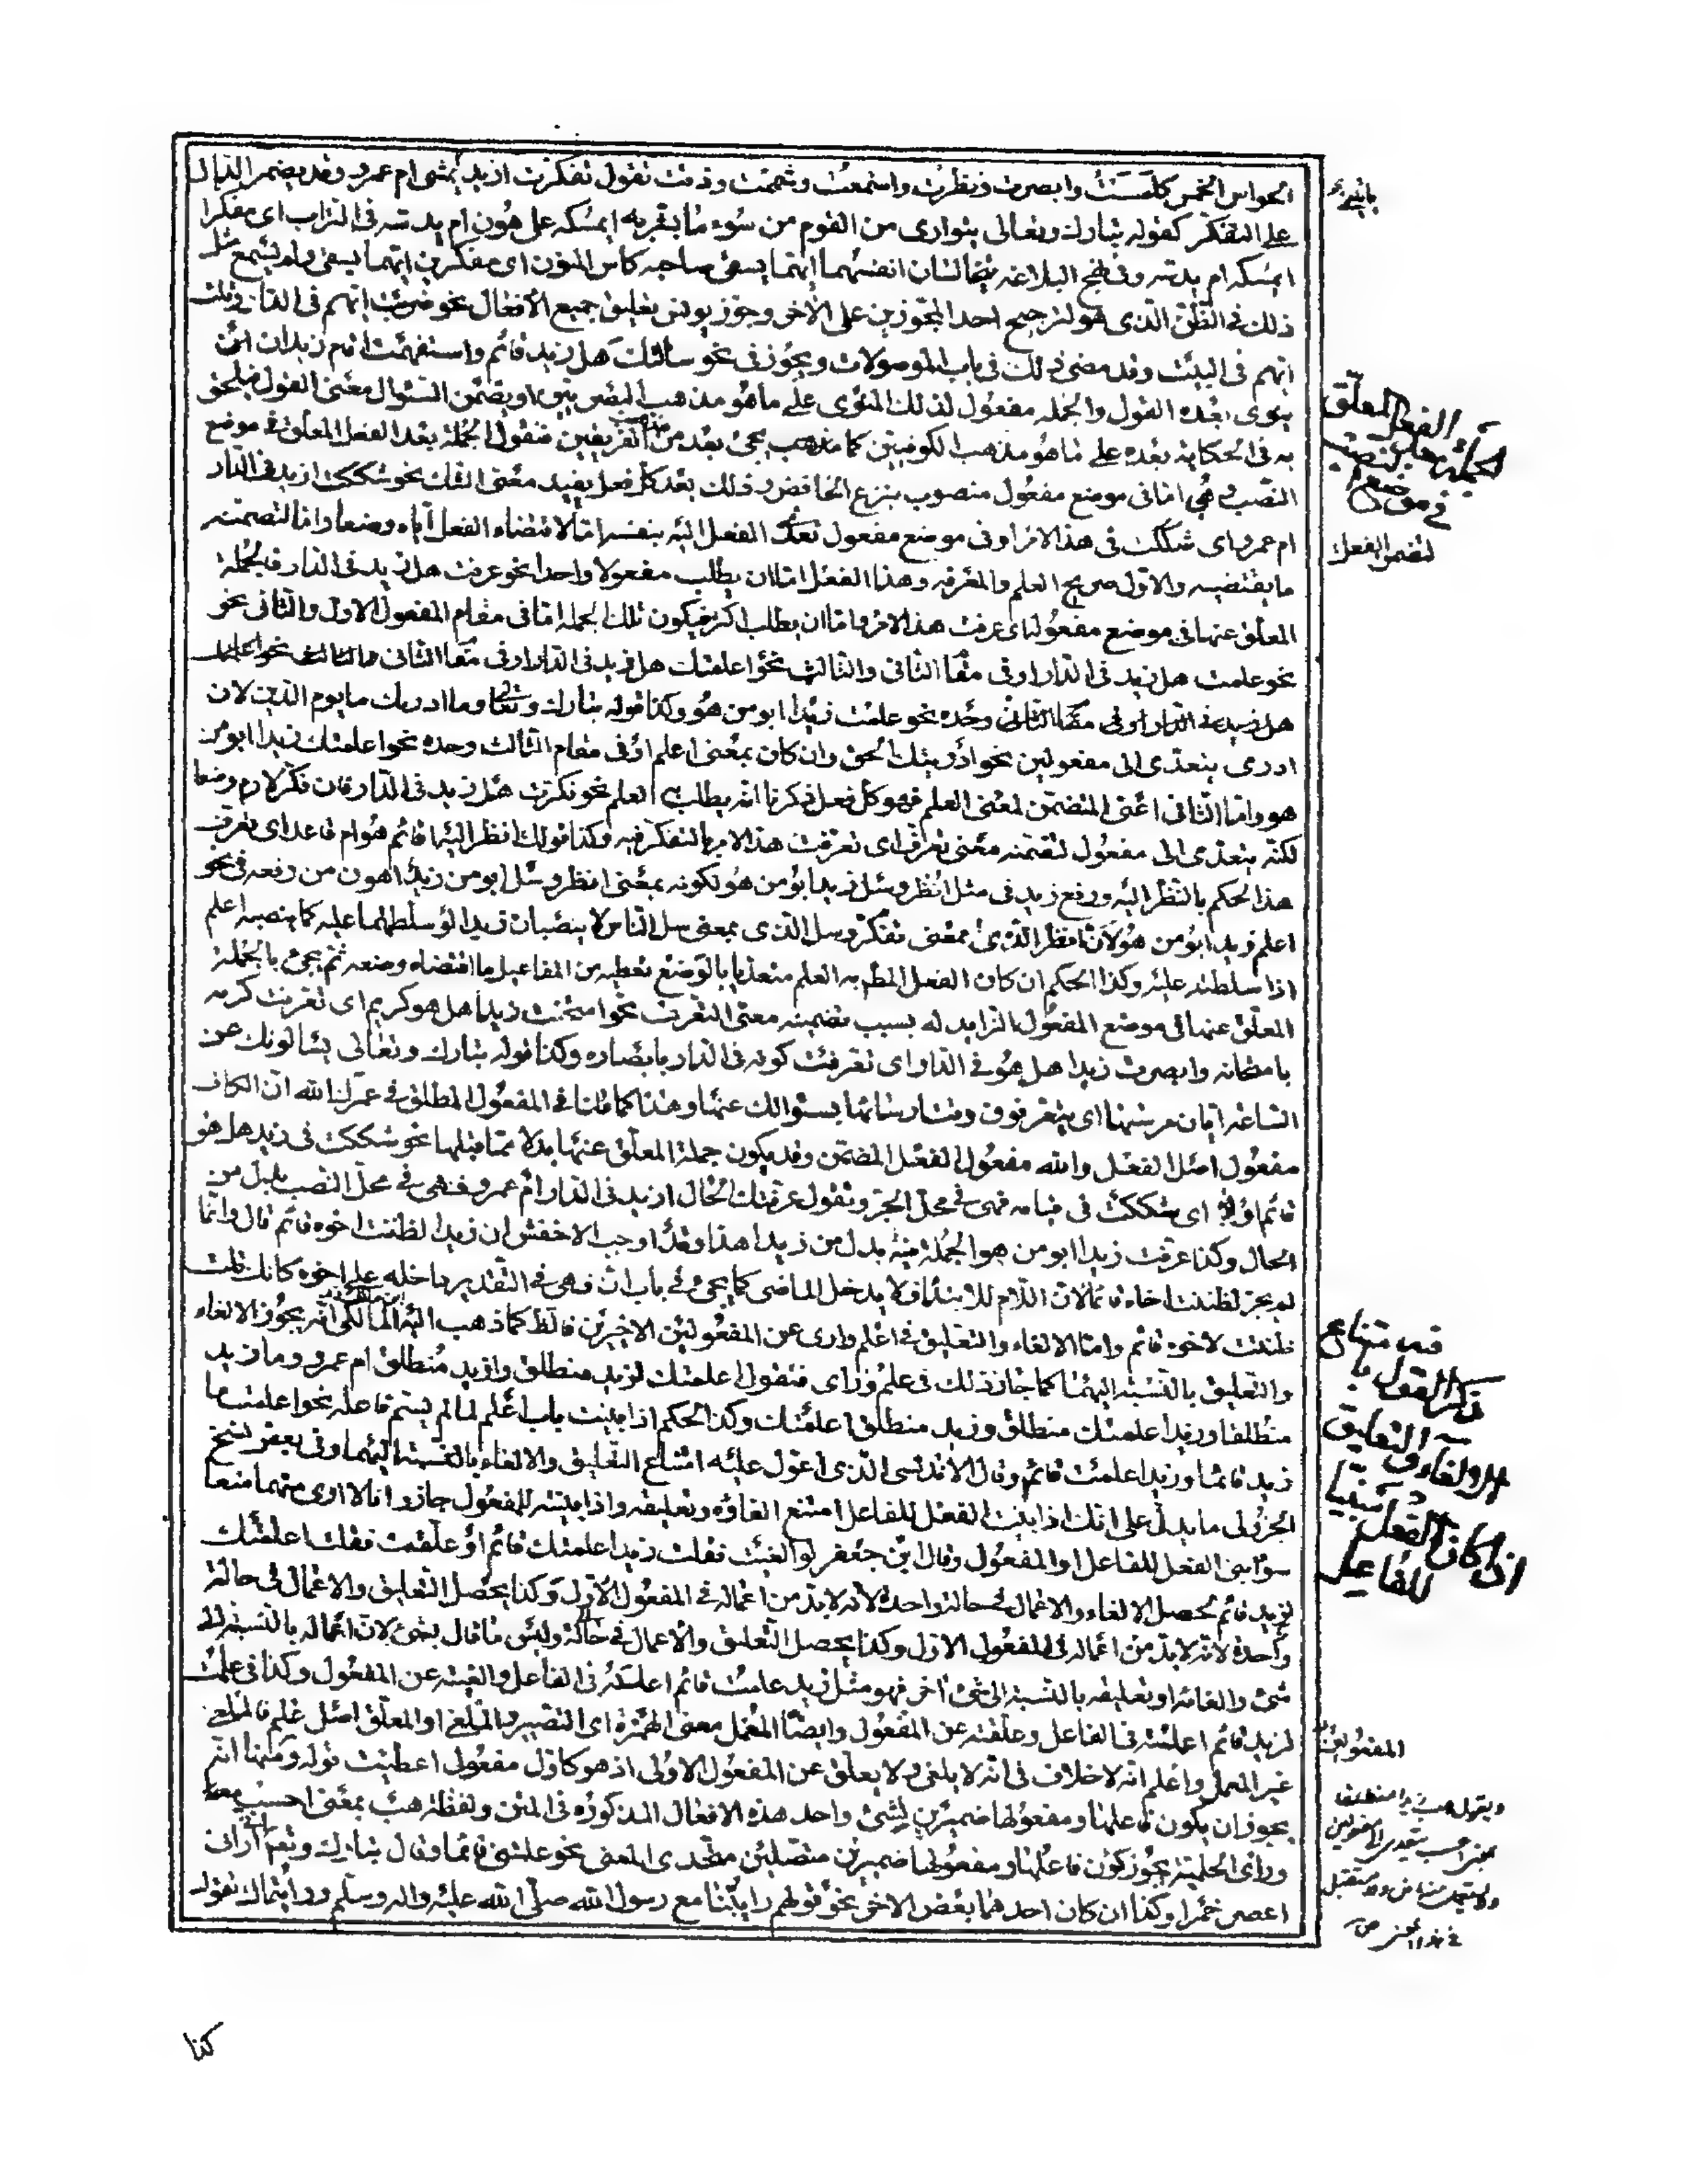 الحواس الخمس كلمست وابصرت ونظرت واستمعت وشممت وذقت تقول تفكرت ازيد يمشي ام عمرو وقد يضمر الدال
على التفكر كقوله تبارك وتعالى يتوارى من القوم من سوء ما بشر به ايمسكه على هون ام يدسه في التراب اى مفكرا
ايمسكه ام يدسه وفي نهج البلاغه يتخالسان انفسهما ايهما يسقى صاحبه كاس المنون اى مفكرين ايهما يسقى ولم يسمع مثل
ذلك في الظن الذى هو لترجيح احد المجوزين على الاخر وجوز يونس تعليق جميع الافعال نحو ضربت ايهم في الدار وقتلت
ايهم في البيت وقد مضى ذلك في باب الموصولات ويجوز في نحو سالتك هل زيد قائم واستفهمت اقام زيد ان
ينوى بعده القول والجمله مفعول لذلك المنوى على ماهو مذهب البصريين او يضمن السؤال معنى القول فيلحق
به في الحكاية بعده على ما هو مذهب الكوفيين كما يجئ بعد من مذهب الفريقين فنقول الجملة بعد الفعل المعلق في موضع
النصب وهي اما في موضع مفعول منصوب بنزع الخافض وذلك بعد كل فعل يفيد معنى الشك نحو شككت ازيد في الدار
ام عمرو اى شككت في هذا الامر او في موضع مفعول تعدى الفعل اليه بنفسه اما لاقتضاء الفعل اياه وضعا واما لتضمنه
ما يقتضيه والاول صريح العلم والمعرفه وهذا الفعل اما ان يطلب مفعولا واحدا نحو عرفت هل زيد في الدار فالجملة
المعلق عنها في موضع مفعوله اى عرفت هذا الامر واما ان يطلب اكثر فيكون تلك الجملة اما في مقام المفعول الاول والثاني نحو
نحو علمت هل زيد في الدار او في مقام الثاني والثالث نحو اعلمتك هل زيد في الدار او في مقام الثاني
هل زيد في الدار او في مقام الثاني وحده نحو علمت زيدا ابو من هو وكذا قوله تبارك وتعالى وما ادريك ما يوم الدين لان
ادرى يتعدى الى مفعولين نحو ادريتك الحق وان كان بمعنى اعلم او في مقام الثالث وحده نحو اعلمتك زيدا ابو من
هو واما الثاني اعنى المتضمن لمعنى العلم فهو كل فعل ذكرنا انه يطلب به العلم نحو فكرت هل زيد في الدار فان فكر لازم وضعا
لكنه يتعدى الى مفعول لتضمنه معنى تعرف اى تعرفت هذا الامر بالتفكر فيه وكذا قولك انظر اليه اقائم هو ام قاعد اى تعرف
هذا الحكم بالنظر اليه ورفع زيد في مثل انظر وسل زيد ابو من هو لكونه بمعنى انظر وسل ابو من زيد اهون من رفعه في نحو
اعلم زيد ابو من هو لان انظر الذى بمعنى تفكر وسل الذى بمعنى سل الناس لا ينصبان زيدا لو سلطتهما عليه كما ينصبه اعلم
اذا سلطته عليه وكذا الحكم ان كان الفعل المط به العلم متعديا بالوضع تعطيه من المفاعيل ما اقتضاه وضعه ثم يجئ بالجملة
المعلق عنها في موضع المفعول الزايد له بسبب تضمينه معنى التعرف نحو امتحنت زيدا هل هو كريم اى تعرفت كرمه
بامتحانه وابصرت زيدا هل هو في الدار اى تعرفت كونه في الدار بابصاره وكذا قوله تبارك وتعالى يسالونك عن
الساعه ايان مرسيها اى يتعرفون وقت ارسائها بسؤالك عنها وهذا كما قلنا في المفعول المطلق في عمرك الله ان الكاف
مفعول اصل الفعل والله مفعول الفعل المضمن وقد يكون جملة المعلق عنها بدلا مما قبلها نحو شككت في زيد هل هو
قائم اولا اى شككت في قيامه فهى في محل الجر وتقول عرفتك الحال ازيد في الدار ام عمرو فهى في محل النصب بدل من
الحال وكذا عرفت زيدا ابو من هو الجملة فيه بدل من زيدا هذا وقد اوجب الاخفش ان زيدا لظننت اخوه قائم قال وانما
لم يجز لظننت اخاه قائما لان اللام للابتداء فلا يدخل الماضى كما يجئ في باب ان فهى في التقدير داخله على اخوه كانك قلت
ظننت لاخوه قائم واما الالغاء والتعليق في اعلم وارى عن المفعولين الاخيرين فالظ كما ذهب اليه ابن المالكى انه يجوز الالغاء
والتعليق بالنسبة اليهما كما جاز ذلك في علم وراى فتقول اعلمتك لزيد منطلق وازيد منطلق ام عمرو وما زيد
منطلقا وزيدا اعلمتك منطلق وزيد منطلق اعلمتك وكذا الحكم اذا بنيت باب اعلم لما لم يسم فاعله نحو اعلمت ما
زيد قائما وزيدا اعلمت قائم وقال الاندلسى الذى اعول عليه امتناع التعليق والالغاء بالنسبة اليهما وفي بعض نسخ
الجزولى ما يدل على انك اذا بنيت الفعل للفاعل امتنع الغاؤه وتعليقه واذا بنيته للمفعول جاز وانا لا ارى منهما منعا
سواء بنى الفعل للفاعل او المفعول وقال ابن جعفر لو الغيت فقلت زيدا اعلمتك قائم او علقت فقلت اعلمتك
لزيد قائم لحصل الالغاء والاعمال في حالة واحدة لانه لا بد من اعماله في المفعول الاول وكذا يحصل التعليق والاعمال في حالة
واحدة لانه لا بد من اعماله في المفعول الاول وكذا يحصل التعليق والاعمال في حالة وليس ما قال بشئ لان اعماله بالنسبة الى
شئ والغائه او تعليقه بالنسبة الى شئ اخر فهو مثل زيد علمت قائم اعملته في الفاعل والغيته عن المفعول وكذا في علمت
لزيد قائم اعملته في الفاعل وعلقته عن المفعول وايضا المعمل معنى الهمزة اى التصيير والملغى او المعلق اصل علم فالملغى
غير المعمل واعلم انه لا خلاف في انه لا يلغى ولا يعلق عن المفعول الاول اذ هو كاول مفعولى اعطيت قوله ومنها انه
يجوز ان يكون فاعلها ومفعولها ضميرين لشئ واحد هذه الافعال المذكوره في المتن ولفظة هب بمعنى احسب
وراى الحلمية يجوز كون فاعلها ومفعولها ضميرين متصلين متحدى المعنى نحو علمتنى قائما وقال تبارك وتعالى انى ارانى
اعصر خمرا وكذا ان كان احدهما بعض الاخر نحو قولهم رايتنا مع رسول الله صلى الله عليه واله وسلم ورايتمالك تقول
الفعل المعلق
في موضع
لتضمن الفعل
فيه متنازع
ذكر القول
الالغاء والتعليق
ان كان الفعل
للفاعل
المفعولين
كذا